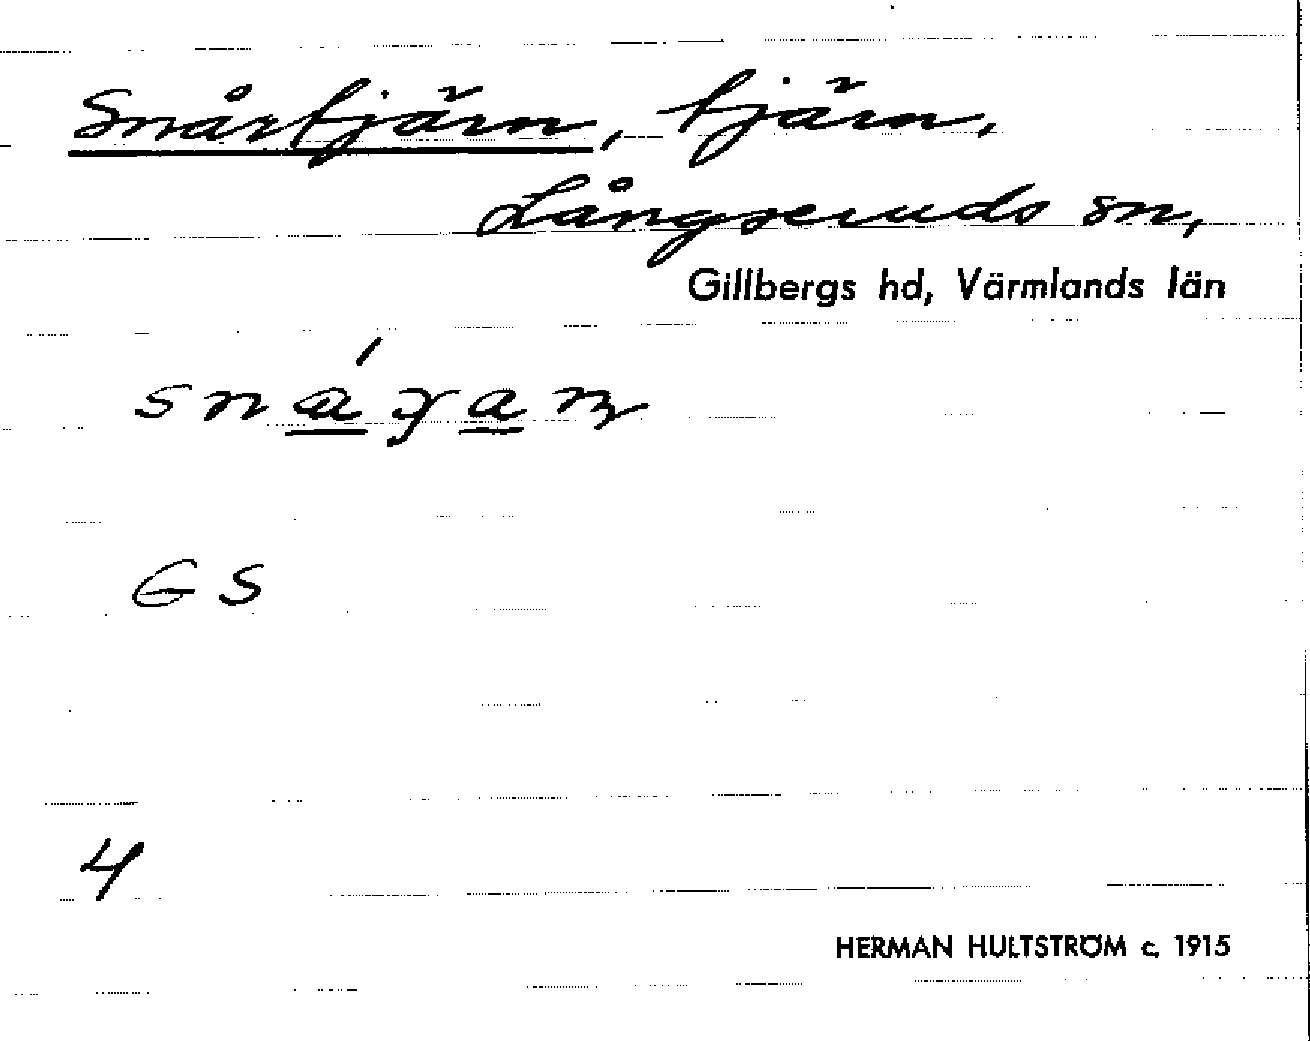 Snårtjärn, tjärn,
Långseruds sn,
Gillbergs hd, Värmlands län
GS
4
HERMAN HULTSTRÖM c. 1915